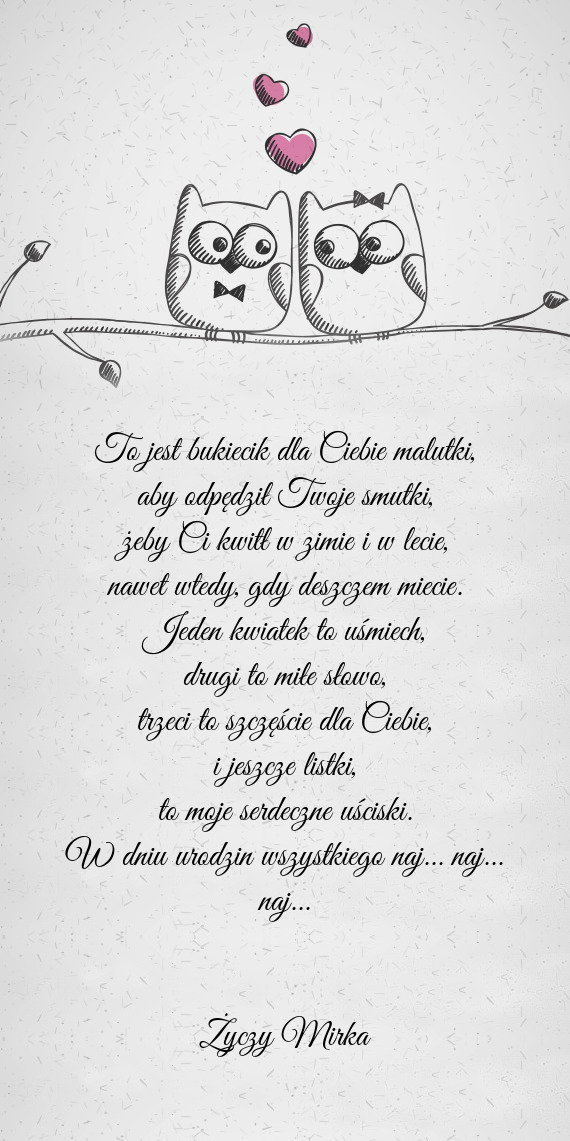 To jest bukiecik dla Ciebie malutki,
aby odpędził Twoje smutki,
żeby Ci kwitł w zimie i w lecie,
nawet wtedy, gdy deszczem miecie.
Jeden kwiatek to uśmiech,
drugi to miłe słowo,
trzeci to szczęście dla Ciebie,
i jeszcze listki,
to moje serdeczne uściski.
W dniu urodzin wszystkiego naj... naj...
naj...
Życzy Mirka